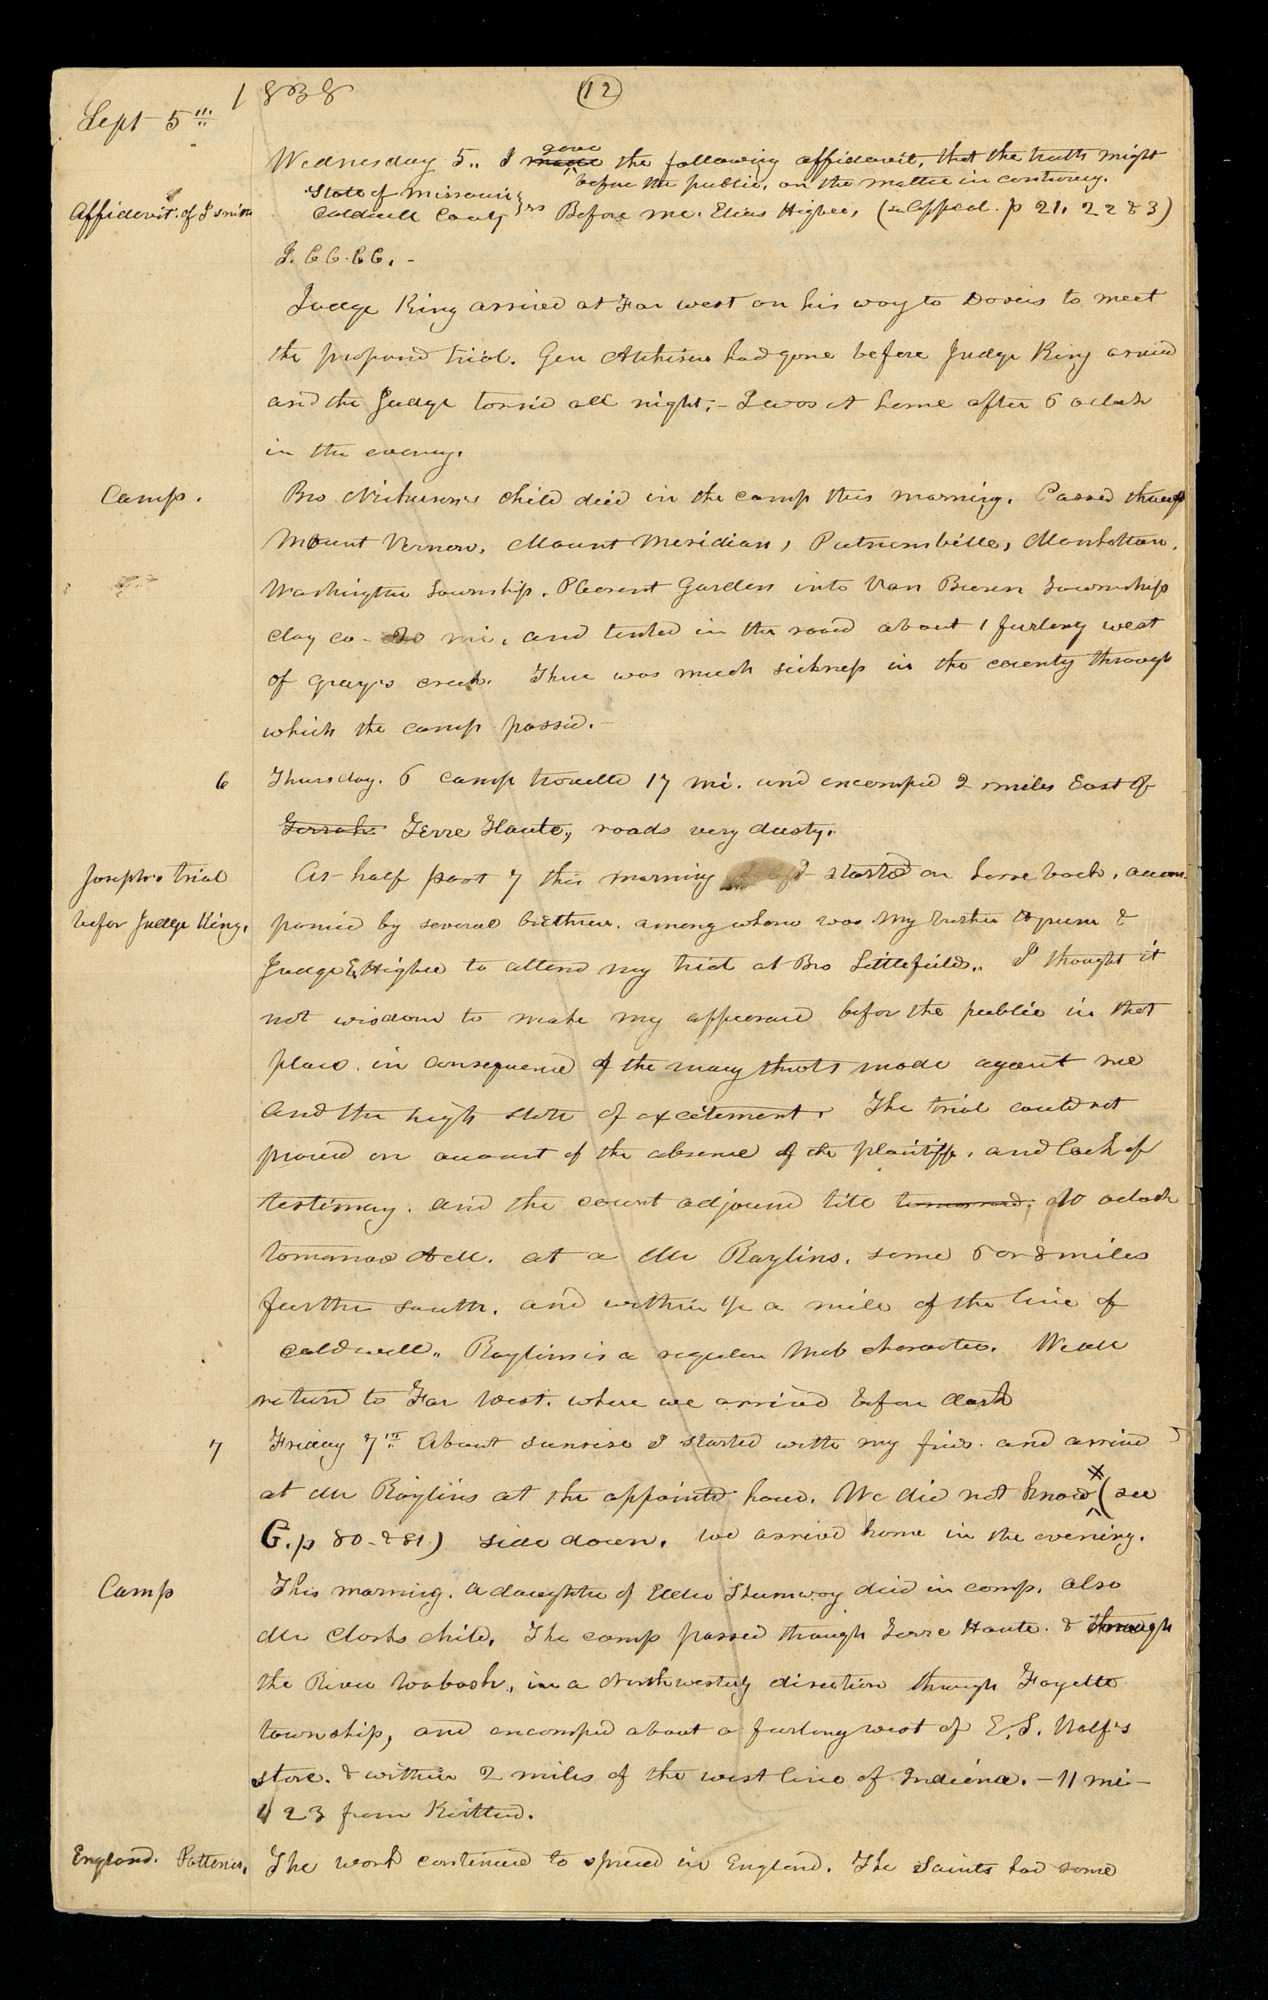 1838
(12)
Sept 5th
Wednesday 5.. I made gave the following affidavit, that the truth might
before the public, on the matter in controversy.
Affidavit of J Smith
State of Missouri
Caldwell County } ss Before me. Elias Higbee, (see Append. p 21, 22 & 3)
Judge King arrived at Far west on his way to Daveis to meet
the proposed trial. Gen Atchison had gone before Judge King arrived
and the Judge tarried all night.- I was at home after 6 oclock
in the evening.
Camp.
Bro. child died in the camp this morning. Passed through
Mount Vernon, Mount Meridian, Putnamville, Manhattan,
Washington Township, Pleasant Garden into Van Buren Township
clay co - 20 mi, and tented in the road about 1 furlong west
of Grays creek. There was much sickness in the county through
which the camp passed.-
6
Thursday. 6 camp travelld 17 mi. and encamped 2 miles East of
Terre Haute, roads very dusty.
Joseph's trial
before Judge King.
At half past 7 this morning I started on horse back, accom
panied by several brethren, among whom was my brother Hyrum &
Judge E. Higbee to attend my trial at Bro Littlefields.. I thought it
not wisdom to make my appearance before the public in that
place. in consequence of the many threats made against me
and the high state of excitement. The trial could not
proceed on account of the absence of the plaintiff, and lack of
testimony. and the court adjourned till tomorrow, at 10 oclock
tomorrow A M. at a Mr Raylins, some 6 or 8 miles
further south. and within 1/2 a mile of the line of
caldwell.. Raylins is a regular Mob character. We all
return to Far West. where we arrived before dark
7
Friday 7th About sunrise I started with my frieds. and arrived
at Mr Raylins at the appointed hour. We did not know X (see
C. p 80- & 81.) side down. we arrived home in the evening.
Camp
This morning. a daughter of Elder Shumway died in camp. also
Mr Clarks child. The camp passed through Terre Haute. & through
the River Wabash,, in a North westerly direction through Fayette
township, and encamped about a furlong west of E. S. Wolf's
store. & within 2 miles of the west line of Indiana. - 11 mi -
423 from Kirtland.
England. Potteries.
The work continued to spread in England. The Saints had some